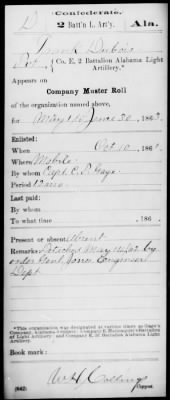 Confederate.
D 2 Batt'n L. Art'y. Ala.
Frank Dubois
Pvt., Co. E, 2 Battalion Alabama Light
Artillery.*
Appears on
Company Muster Roll
of the organization named above,
for May 1 to June 30, 1862.
Enlisted:
When Oct 10, 186
Where Mobile
By whom Capt. C. P. Gage
Period 12 mo
Last paid:
By whom
To what time , 186 .
Present or absent Absent
Remarks: Detached May 14/62 by
order Genl Jones Engineer
Dept
*This organization was designated at various times as Gage's
Company, Alabama
of Light Artillery and Company E, 2d Battalion Alabama
Light Artillery.
Book mark:
(642) Copyist.